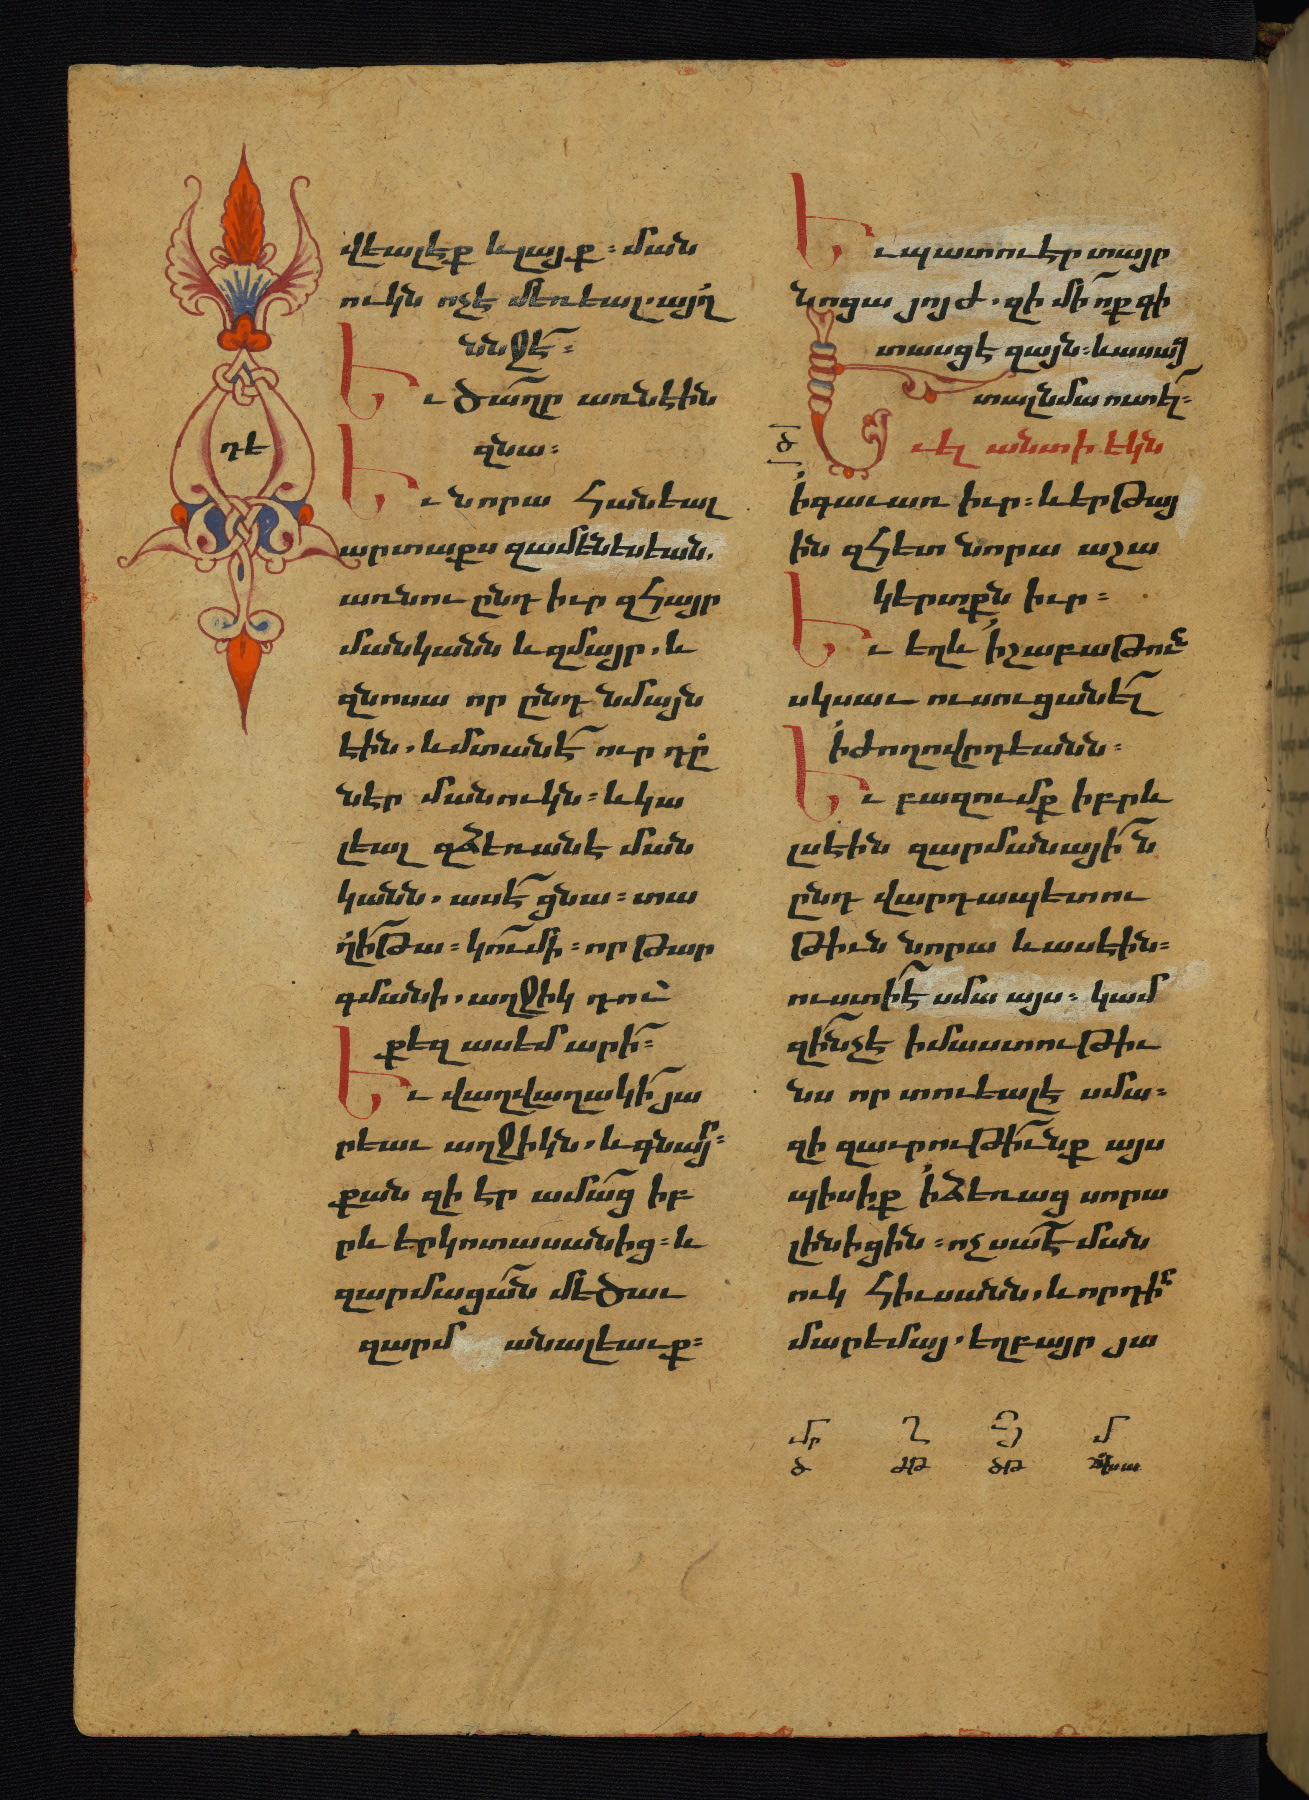 վէալէք և լայք։ ման
ուկն ոչէ մեռեալ. այղ
ննջէ։
Եւ ծաղր առնէին
զնա։
Եւ նորա հանեալ
արտաքս զամենեսեան.
առնու ընդ իւր զհայր
մանկանն և զմայր. և
զնոսա որ ընդ նմայն
էին. և մտանէ ուր դը
նէր մանուկն։ և կա
լեալ զձեռանէ ման
կանն. ասէ ցնա։ տա
ղիթա։ կումի։ որ թար
գմանի. աղջիկ դու
քեզ ասեմ արի։
Եւ վաղվաղակի յա
րեաւ աղջիկն. և գնայր։
քան զի էր ամաց իբ
րև երկոտասանից։ և
զարմացան մեծաւ
զարմ անալեաւք։
դե
Եւ պատուէր տայր
նոցա յոյժ. զի մի ոք գի
տասցէ զայն։ և ասաց
տալ նմա ուտել։
Եւ ել անտի եկն
ի գաւառ իւր։ և երթայ
ին զհետ նորա աշա
կերտքն իւր։
Եւ եղև ի շաբաթու
սկսաւ ուսուցանել
ի ժողովրդեանն։
Եւ բազումք իբրև
լսէին զարմանային
ընդ վարդապետու
թիւն նորա և ասէին։
ուստի է սմա այս։ կամ
զինչ է իմաստութիւ
նս որ տուեալ է սմա։
զի զաւրութիւնք այս
պիսիք ի ձեռաց սորա
լինիցին։ ոչ սա է ման
ուկ հիւսանն. և որդի
մարեմայ. եղբայր յա
ծ
մր Ղ Յ մ
ծ ժթ ծթ